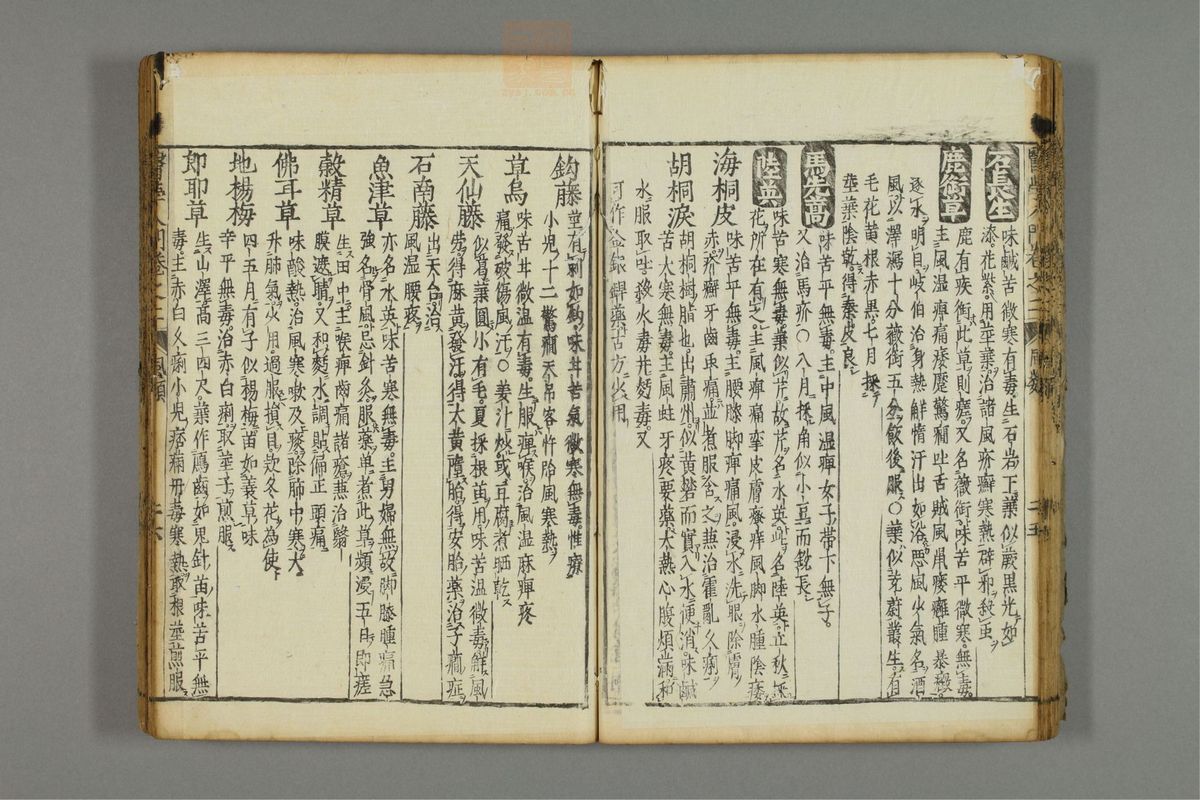 石長生 味鹹苦微寒有毒生石岩下葉似蕨黒光如
漆花紫用莖葉治諸風疥癬寒熱辟邪殺虫
鹿銜草 鹿有疾銜此草則瘥又名薇銜味苦平微寒無毒
主風湿痺痛痿歴驚癇吐舌賊風鼠瘻癰腫暴癥
逐水明目岐伯治身熱鮮惰汗出如浴悪風少氣名酒
風以澤瀉十分薇銜五分飯後服○葉似茺蔚叢生有
毛花黄根赤黒七月採
莖葉陰乾得秦皮良
馬先蒿 味苦平無毒主中風湿痺女子帯下無子
又治馬疥○八月採角似小豆而鋭長
陸英 味苦寒無毒葉似芹故芹名水英此名陸英立秋採
花所在有之主風痺痛攣皮膚瘙痒風脚水腫陰痿
海桐皮 味苦平無毒主腰膝脚痺痛風浸水洗眼除膚
赤疥癬牙齒虫痛並煮服含之兼治霍亂久痢
胡桐淚 胡桐樹脂也出肅州似黄礬而實入水便消味鹹
苦大寒無毒主風蛀牙疼要藥大熱心腹煩滿和
水服取吐殺火毒并麪毒又
可作金銀銲藥古方少用
鈎藤 莖有刺如鈎味甘苦氣微寒無毒性療
小児十二驚癇天吊客忤胎風寒熱
草烏 味苦甘微温有毒生服痺喉治風湿麻痺疼
痛發破傷風汗○姜汁炒或豆腐煮晒乾
天仙藤 似葛葉圓小有毛夏採根苗用味苦温微毒解風
勞得麻黄發汗得大黄墮胎得安胎藥治子癇症
石南藤 出天台治
風湿腰疼
魚津草 亦名水英味苦寒無毒主男婦無故脚膝腫痛急
強名骨風忌針灸服藥单煮此草頻浸五日即瘥
穀精草 生田中主喉痺齒痛諸瘡兼治翳
膜遮睛又和麪水調貼偏正頭痛
佛耳草 味酸熱治風寒嗽及痰除肺中寒大
升肺氣少用過服損目欵冬花為使
地楊梅 四五月有子似楊梅苗如蓑草味
辛平無毒治赤白痢取莖子煎服
即耶草 生山澤高三四尺葉作鴈齒如鬼針苗味苦平無
毒主赤白久痢小児痞痢丹毒寒熱取根莖煎服
醫學入門卷之二 風類 二六